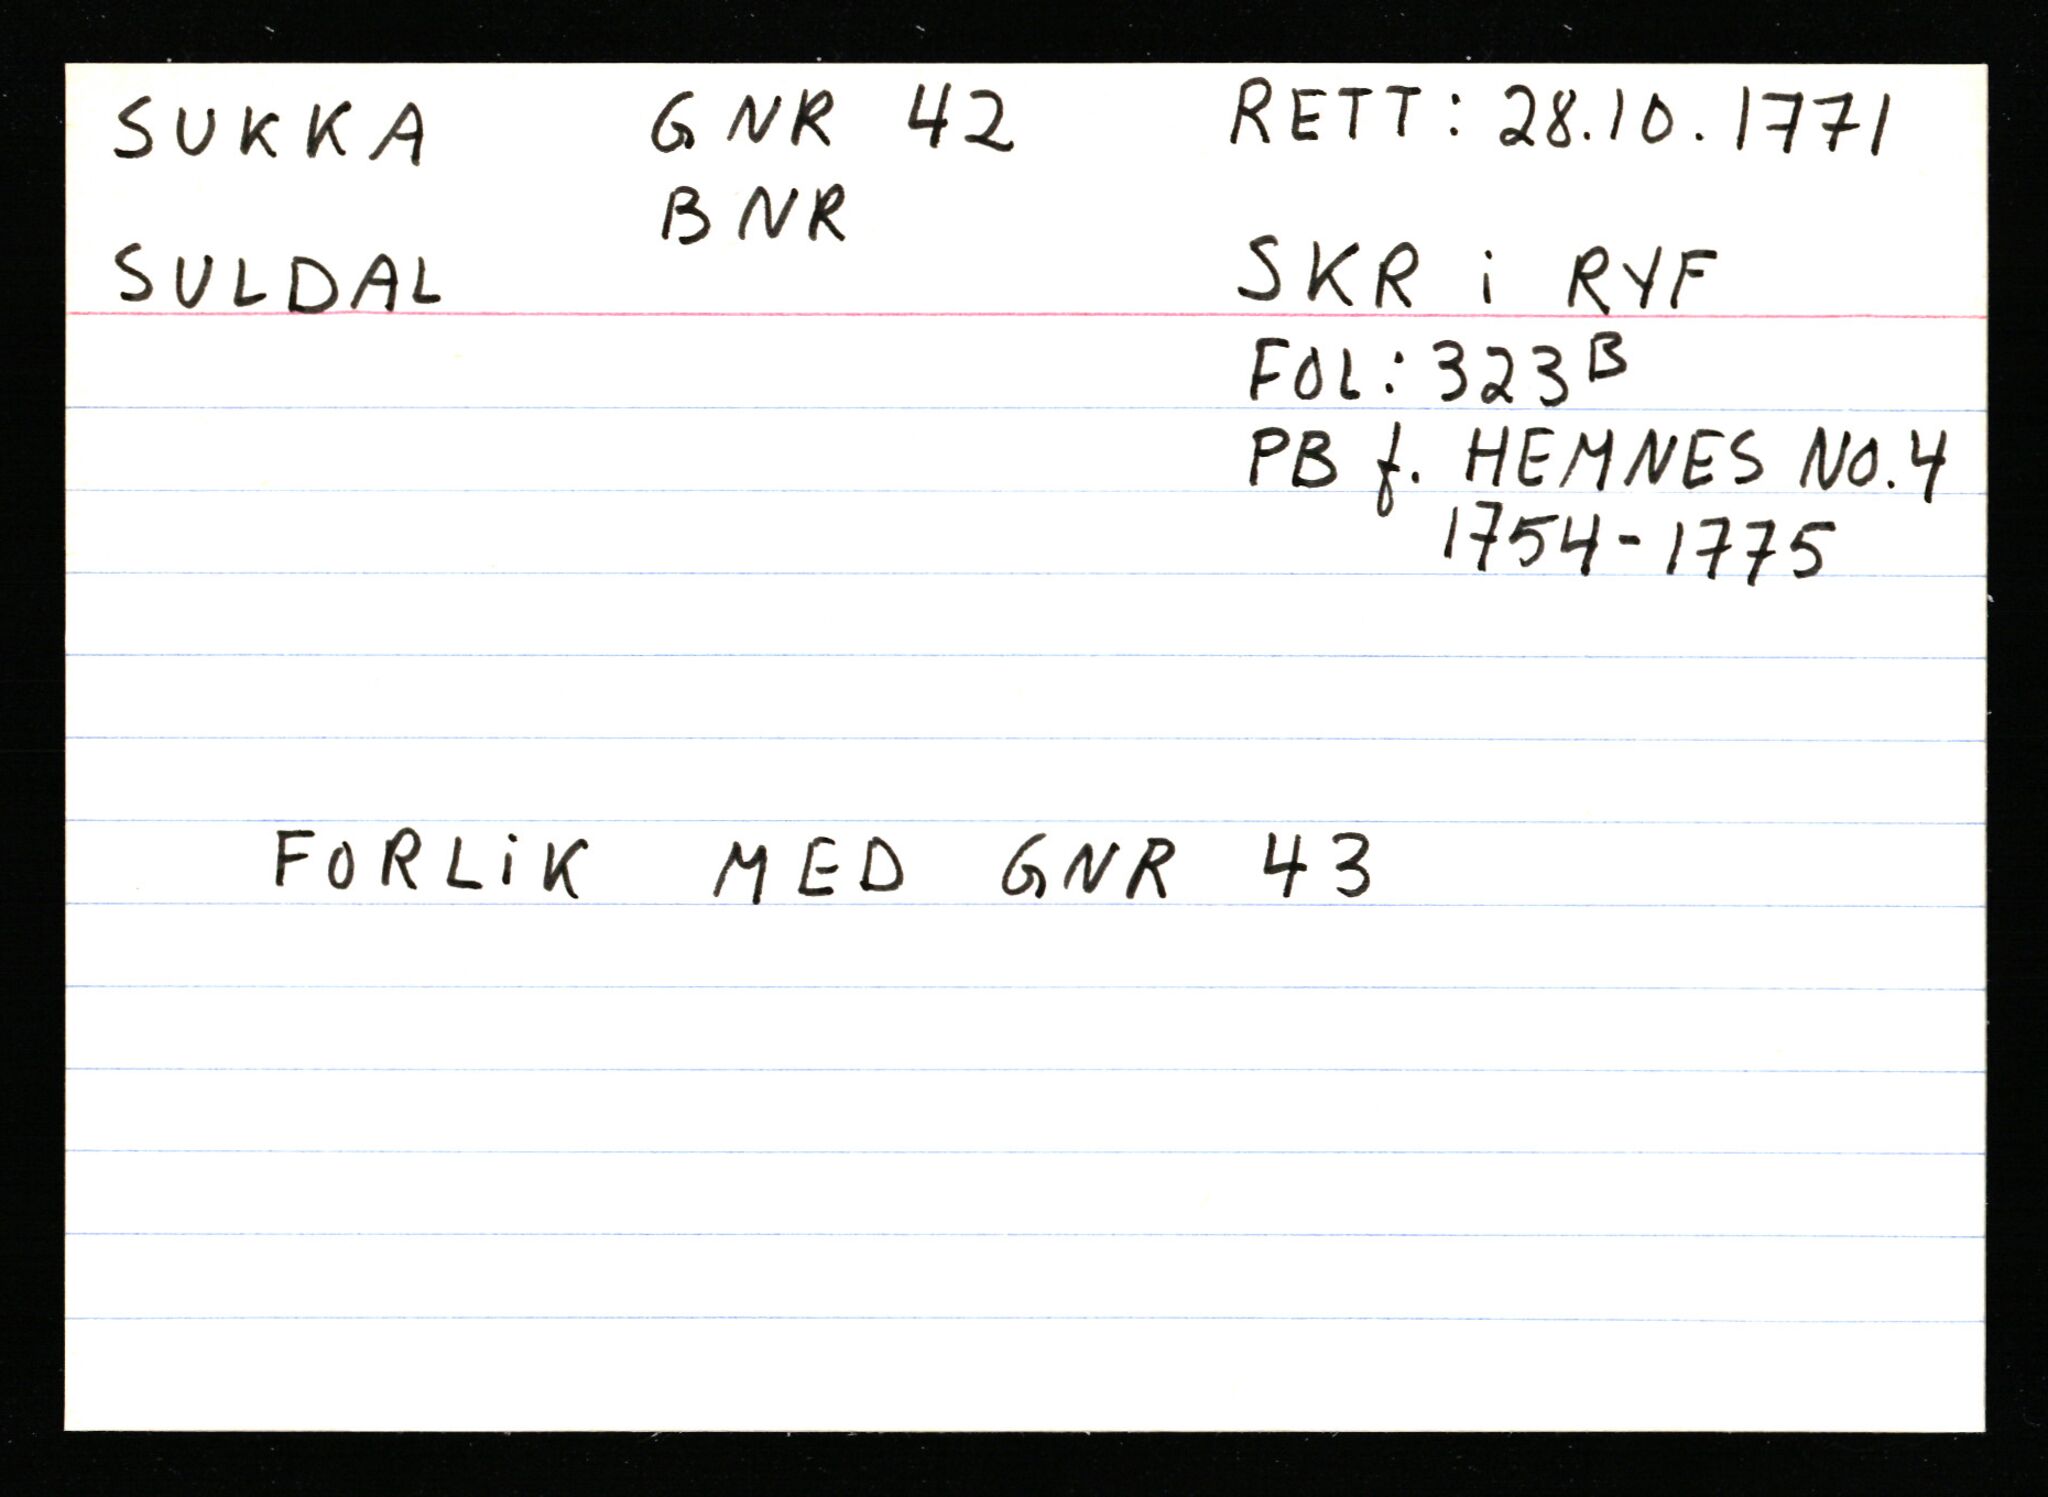 SUKKA GNR 42 RETT: 28.10.1771
BNR
SULDAL SKR i RYF
FOL: 323B
PB f. HEMNES NO.4
1754-1775
FORLiK MED GNR 43